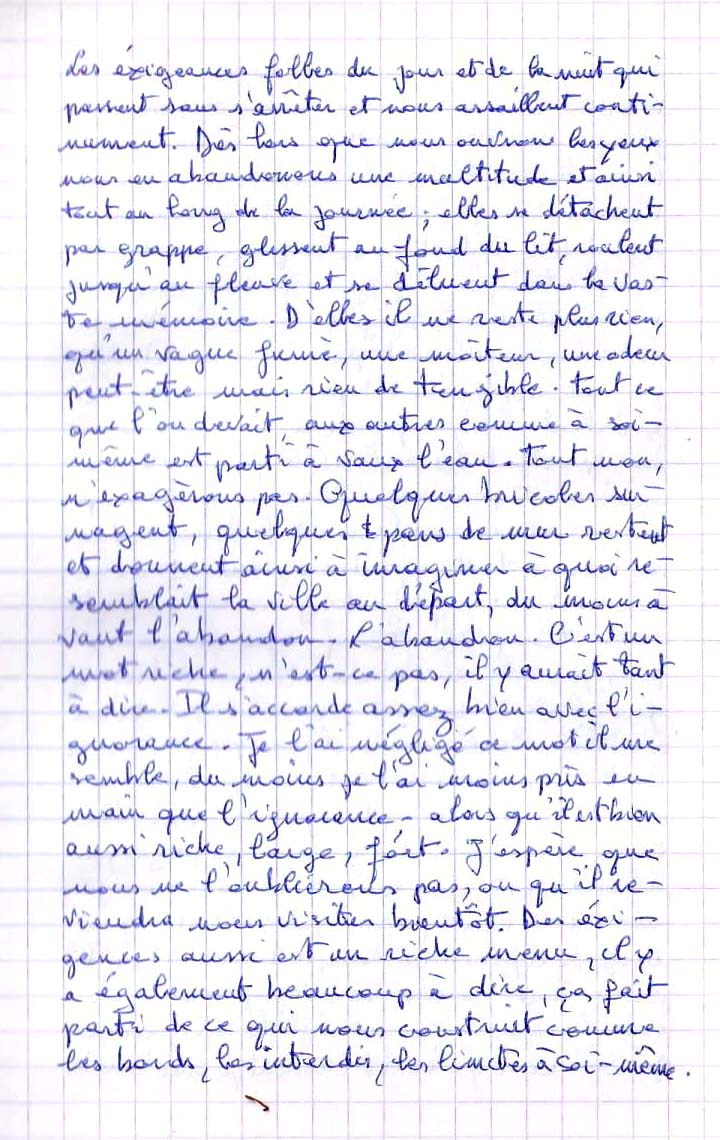 Les éxigeances folles du jour et de la nuit qui
passent sans s'arrêter et nous assaillent conti-
nument. Dès lors que nous ouvrons les yeux
nous en abandonnons une multitude et ainsi
tout au long de la journée ; elles se détachent
par grappe, glissent au fond du lit, roulent
jusqu'au fleuve et se diluent dans la vas-
te mémoire. D'elles il ne reste plus rien,
qu'un vague fumé, une moiteur, une odeur
peut-être mais rien de tangible. Tout ce
que l'on devait, aux autres comme à soi-
même est parti à vaux l'eau. Tout non,
n'exagèrons pas. Quelques bricoles sur-
nagent, quelques pans de mur restent
et donnent ainsi à imaginer à quoi re-
semblait la ville au départ, du moins a
vant l'abandon. L'abandon. C'est un
mot riche, n'est-ce pas, il y aurait tant
à dire. Il s'accorde assez bien avec l'i-
gnorance. Je l'ai négligé ce mot il me
semble, du moins je l'ai moins pris en
main que l'ignorance - alors qu'il est bien
aussi riche, large, fort. J'espère que
nous ne l'oublierons pas, ou qu'il re-
viendra nous visiter bientôt. Des éxi-
gences aussi est un riche menu, il y
a également beaucoup à dire, ças fait
parti de ce qui nous construit comme
les bords, les interdis, les limites à soi-même.